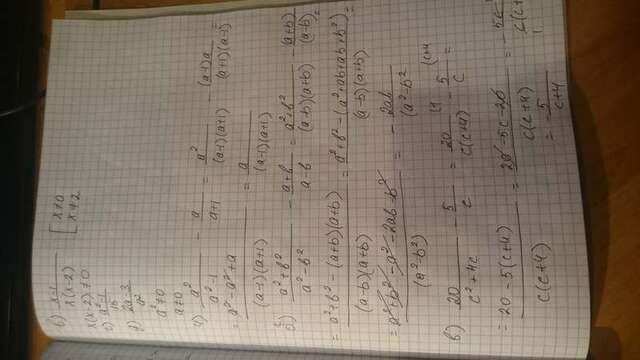 б) x-1 / x(x-2) [ x≠0 x≠2
x(x-2)≠0
a²≠0
a≠0
a² / a²-1 - a / a+1 = a² / (a-1)(a+1) - (a-1)a / (a+1)(a-1)
= a²-a²+a / (a-1)(a+1) = a / (a-1)(a+1)
б) a²+b² / a²-b² - a+b / a-b = a²+b² / (a-b)(a+b) - (a+b) / (a-b) =
= a²+b²-(a+b)(a+b) / (a-b)(a+b) = a²+b²-(a²+ab+ab+b²) / (a-b)(a+b) =
= a²+b²-a²-2ab-b² / (a²-b²) = - 2ab / (a²-b²)
в) 20 / c²+4c - 5 / c = 20 / c(c+4) - 5 / c (c+4 =
= 20-5(c+4) / c(c+4) = 20-5c-20 / c(c+4) = - 5c / c(c+
= - 5 / c+4